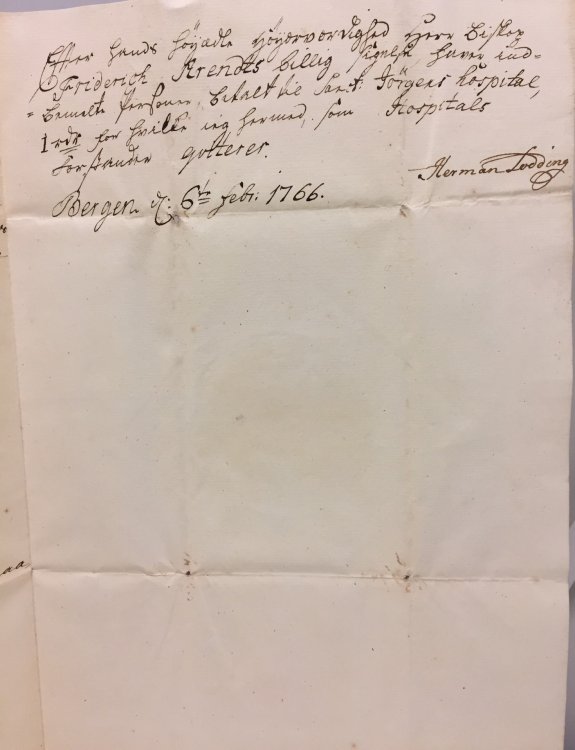 Efter hands Höyædle Höyærværdighed Herr Biskop
Friderich Arendts billig haver ind-
bemelte Personer, betalt til Sanct: Jörgens Hospital,
1 rdr for hvilke ieg hermed, som Hospitals
Forstander qvitterer.
Herman Lodding
Bergen d: 6te Febr: 1766.
aa